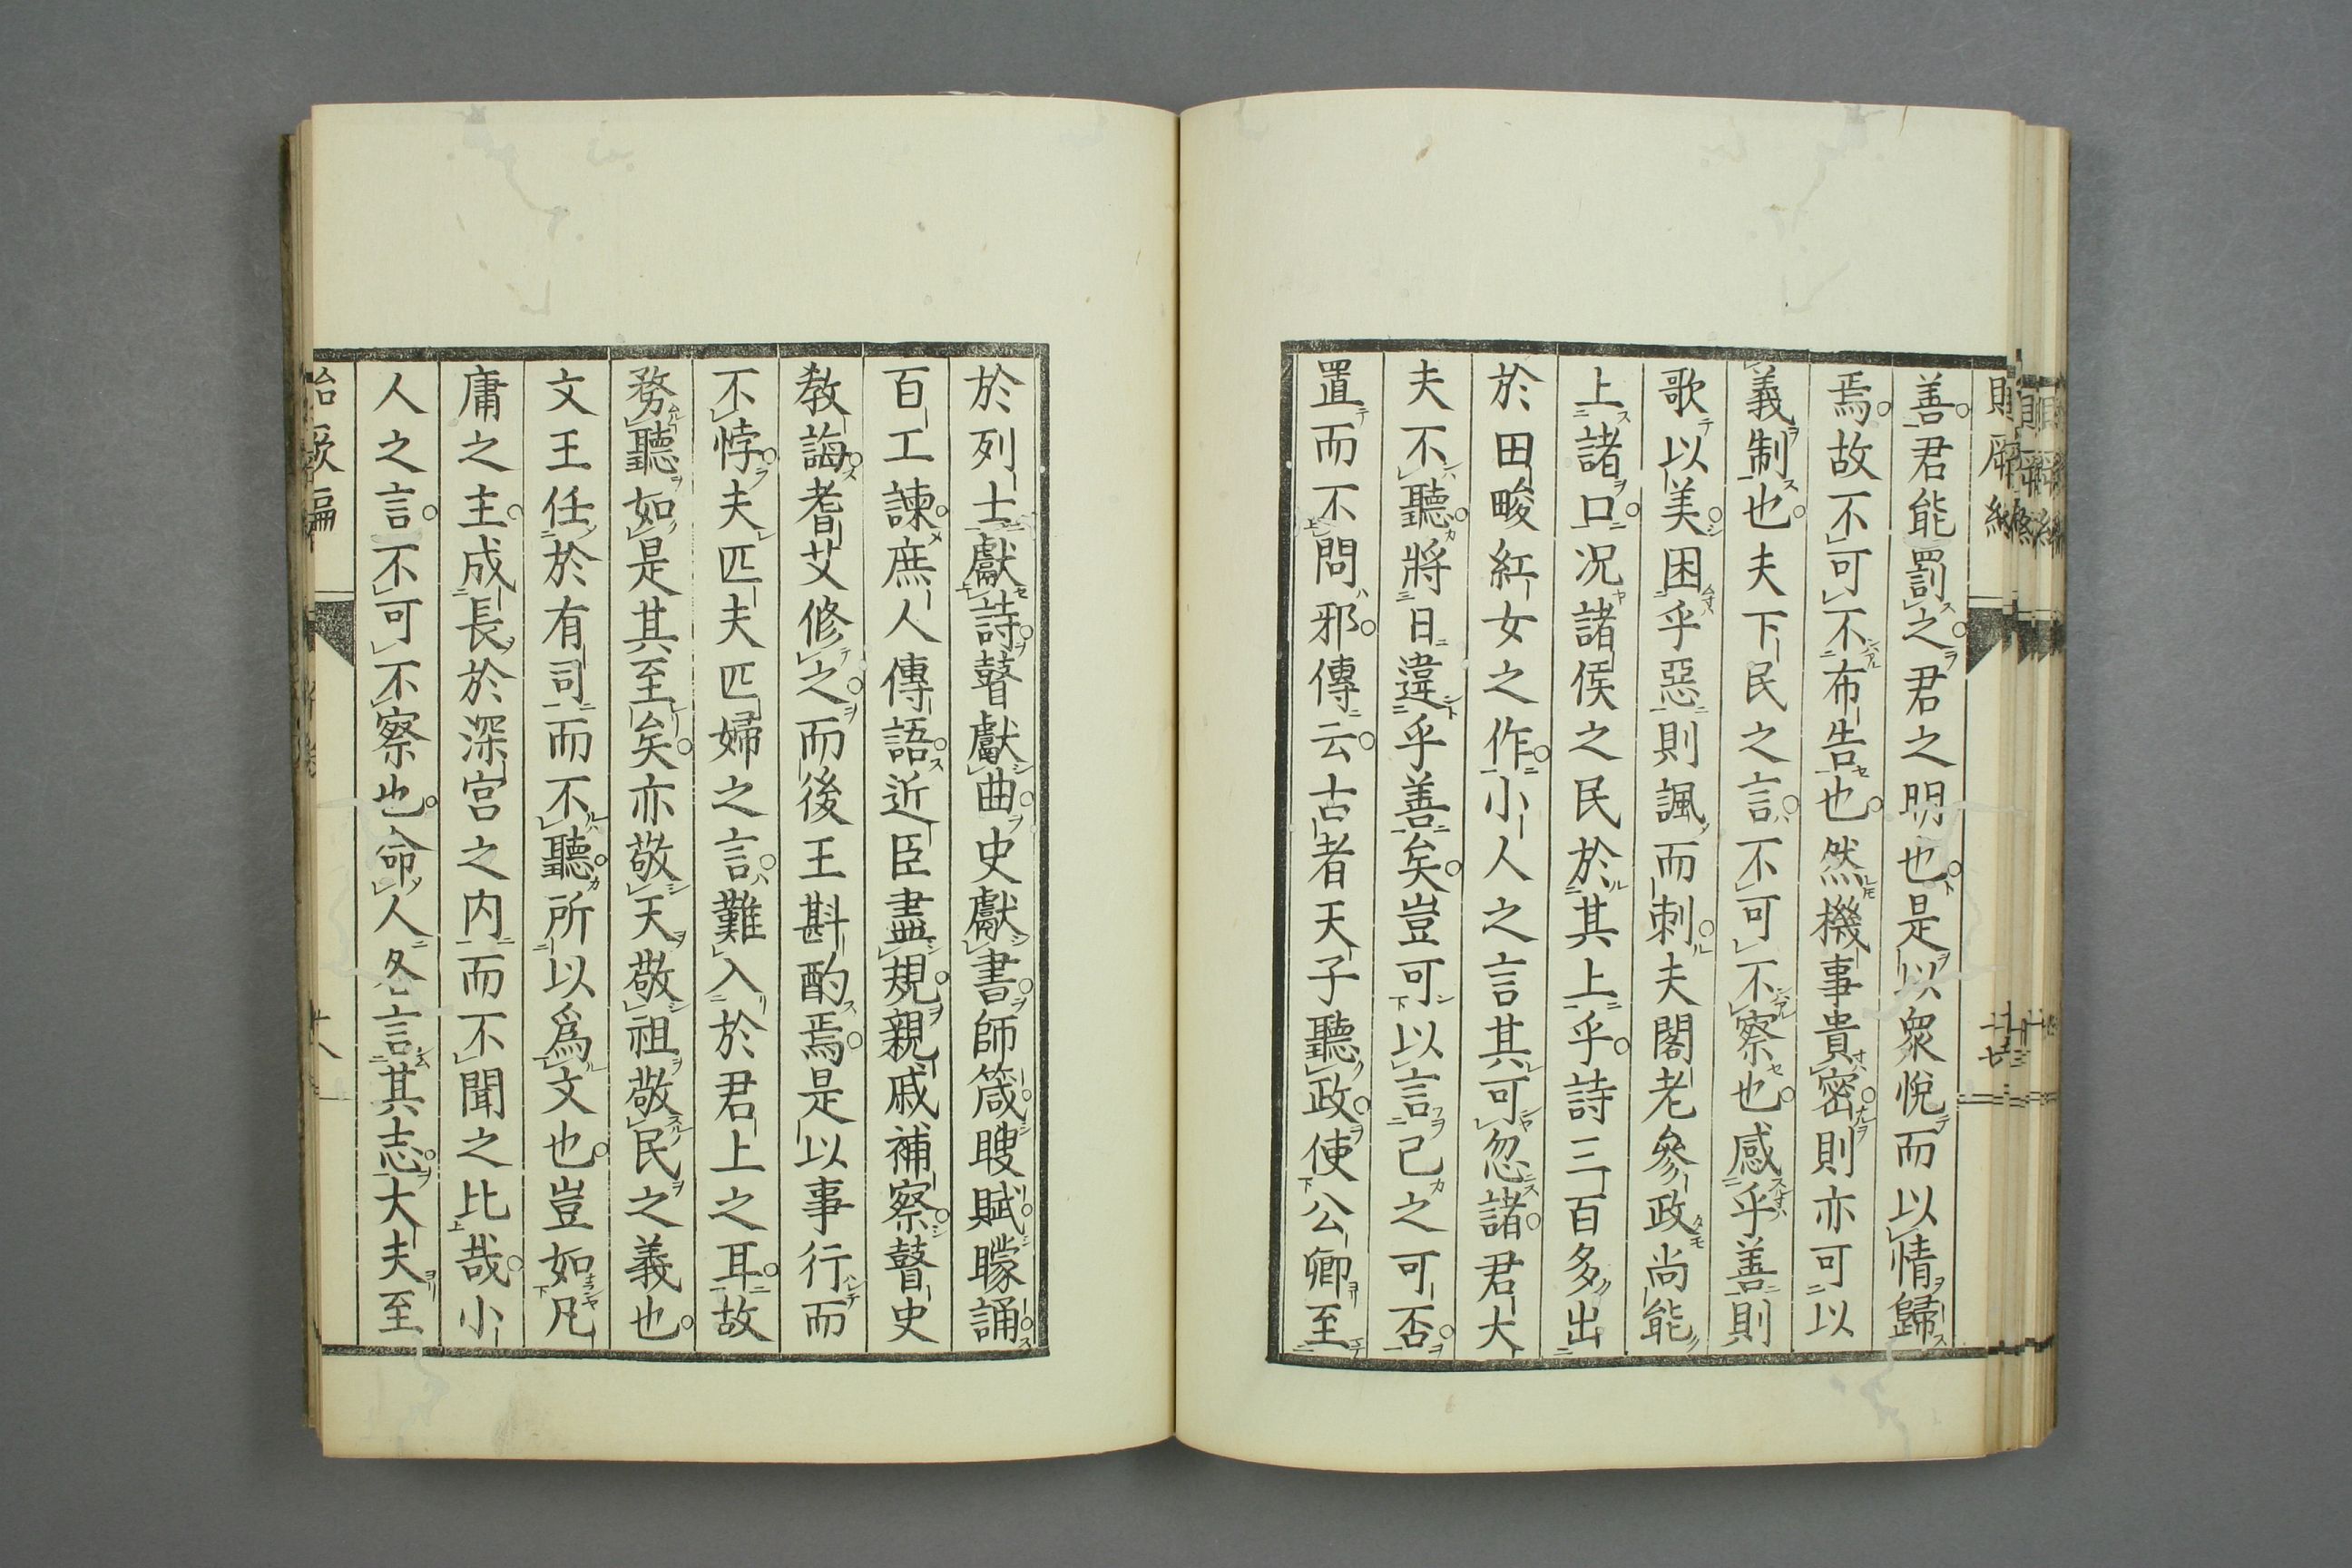 善君能罰之君之明也是以衆悅而以情歸
焉故不可不布告也然機事貴密則亦可以
義制也夫下民之言不可不察也感乎善則
歌以美困乎惡則諷而刺夫閣老參政尚能
上諸口況諸侯之民於其上乎詩三百多出
於田畯紅女之作小人之言其可忽諸君大
夫不聽將日違乎善矣豈可以言己之可否
置而不問邪傳云古者天子聽政使公卿至
於列士獻詩瞽獻曲史獻書師箴瞍賦矇誦
百工諫庶人傳語近臣盡規親戚補察瞽史
教誨耆艾修之而後王斟酌焉是以事行而
不悖夫匹夫匹婦之言難入於君上之耳故
務聽如是其至矣亦敬天敬祖敬民之義也
文王任於有司而不聽所以爲文也豈如凡
庸之主成長於深宮之內而不聞之比哉小
人之言不可不察也命人各言其志大夫至